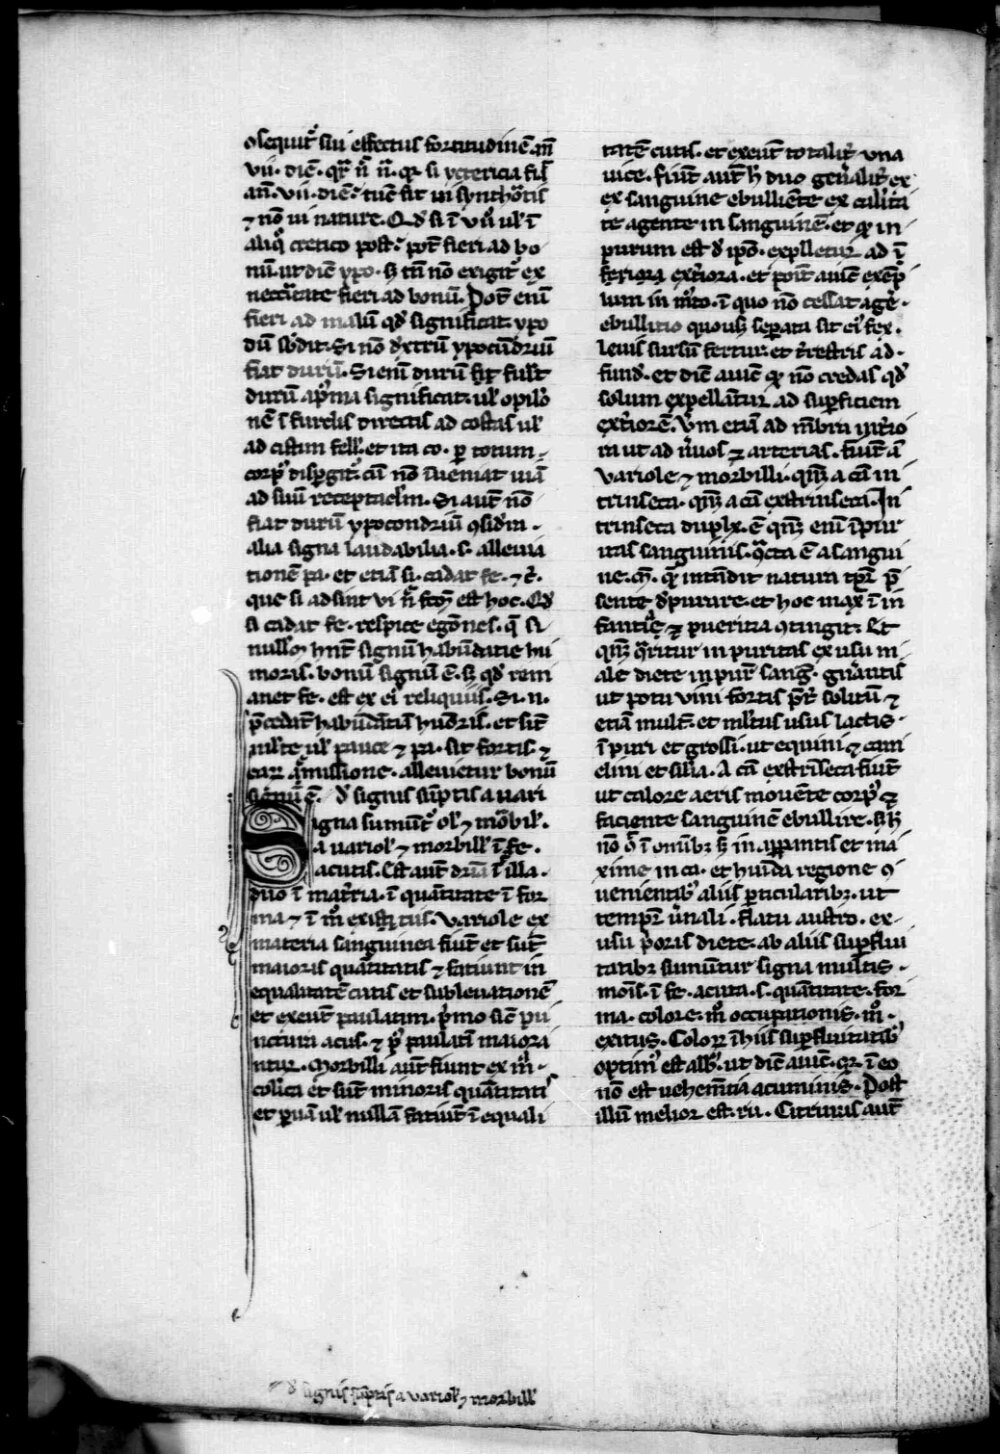 ꝯsequit᷑ sui effectus fortitudinē añ
vii. diē. qr̄ ñ ñ. qꝛ si yctericia fiſ
añ. vii. diē. tūc fit ui synthōtis
⁊ nō ui nature. Qd̓ si ī vñ ul̓ ī
aliq̊ cretico post. pōt fieri ad bo
nū. ut diē ypo. s; tn̄ nō exigit᷑ ex
necc̄itate fieri ad bonū. Pōt enī
fieri ad malū qd̓ significat ypo
dū s̄bdit. Si nō dextrū ypocūdriū
fiat durū. Si enī durū fit
durū ap̄ma significat ul̓ opilō
nē ī furclis directis ad costas ul̓
ad cistim fell̓. et ita co. ꝑ totum
corp᷒ disꝑgit᷑. cū nō īueniat uiā
ad suū receptacl̓m. Si aut̄ nō
fiat durū ypocondriū ꝯsid̓in
alia signa laudabilia. s. alleuia
tionē pa. et etiā si cadat fe. ⁊ c̄.
que si adsint vi est hoc. Qd̓
si cadat fe. respice egōnes. q̄ si
null̓ hn̄t signū habūdātie hu
moris. bonū signū ē. s; qd̓ rem
anet fe. est ex ei᷒ reliquiis. Si. n.
p̄cedāt habūdātiā hūoris. et sūt
ml̓te ul̓ pauce ⁊ pa. sit fortis. ⁊
ear᷑ āmissione. alleuietur bonū
signū ē. d̓ signis sūptis a uari
Signa sumūt᷑ ol̓ ⁊ mōbil̓.
a uariol̓ ⁊ morbill̓ ī fe.
acutis. Est aut̄ dr̄ia īt̓ illa.
duo ī mat̓ria. ī quātitate ī for
ma ⁊ ī m̊ exitus. Variole ex
materia sanguinea fiūt et sūt
maioris quātitatis ⁊ fatiunt in
equalitatē cutis et subleuationē
et exeūt paulatim. p̓mo sic̄ pū
nctura acus. ⁊ p᷒ paulatī maiora
ntur. Morbilli aut̄ fiunt ex m̄.
colica et sūt minoris quātitatis
et ꝑuā ul̓ nullā fatiūt īequali
tatē cutis. et exeūt totalit̓ una
uice. fiūt aut̄ h̄ duo gen̓alit̓ ex
ex sanguine ebulliēte ex calid̓ita
te agente in sanguinē. et qꝛ in
purum est d̓ ipō. explletur ad ī
feriora ext̓iora. et poīt auic̄ exēp̄
lum in m̓to. ī quo nō cessat agē.
ebullitio quousq; seꝑata sit ei᷒ fex.
leuis sursū fertur. et t̓restris ad.
fund̓. et diē auic̄ qꝛ nō credas qd̓
solum expellātur ad suꝑficiem
ext̓iorē. Vm̄ etiā ad mēbra int̓io
ra ut ad n̓uos ⁊ arterias. fiūt ā
variole ⁊ morbilli. qn̄q; a cā in
trinseca. qn̄q; a cā exstrinseca. In
trinseca duplx̄. ē qn̄q; enī īpur
itas sanguinis. ē a sangui
ne. m̄. qn̄ intēdit natura tp̄r p̄
sente d̓purare. et hoc max̄ ī in
fantia ⁊ pueritia ꝯtingit. Et
qn̄q; ꝗritur inpuritas ex usu m
ale diete inpur̄ sang̓. gn̄antis
ut potu vini fortis p̄t̓ solitū ⁊
etiā mult̄. et ml̓tus usus lactis.
īpuri et grossi. ut equini ⁊ cam
elini et sil̓ia. A cā exstrīseca fiūt
ut calore aeris mouēte corp᷒ ⁊
faciente sanguinē ebullire. s; h̄
nō ī onībꝫ s; in ꝓꝑantis et ma
xime in ca. et hūīda regione ꝯ
uenientib᷒ aliis ꝑticularibꝫ. ut
tempr̄ u̓nali. flatu austro. ex
usu p̓oris diete. ab aliis suꝑflui
tatibꝫ sumūtur signa multis.
mōis. ī fe. acuta. s. quātitate. for
ma. colore. m̊ occupationis. m̊.
exitus. Color ī his suꝑfluitatib᷒
optim᷒ est alb᷒. ut diē auic̄. qꝛ ī eo
nō est uehemētia acuminis. Post
illū melior est. ru. Citrinis aut̄
d̓ signis sūptis a uariol̓ ⁊ morbill̓